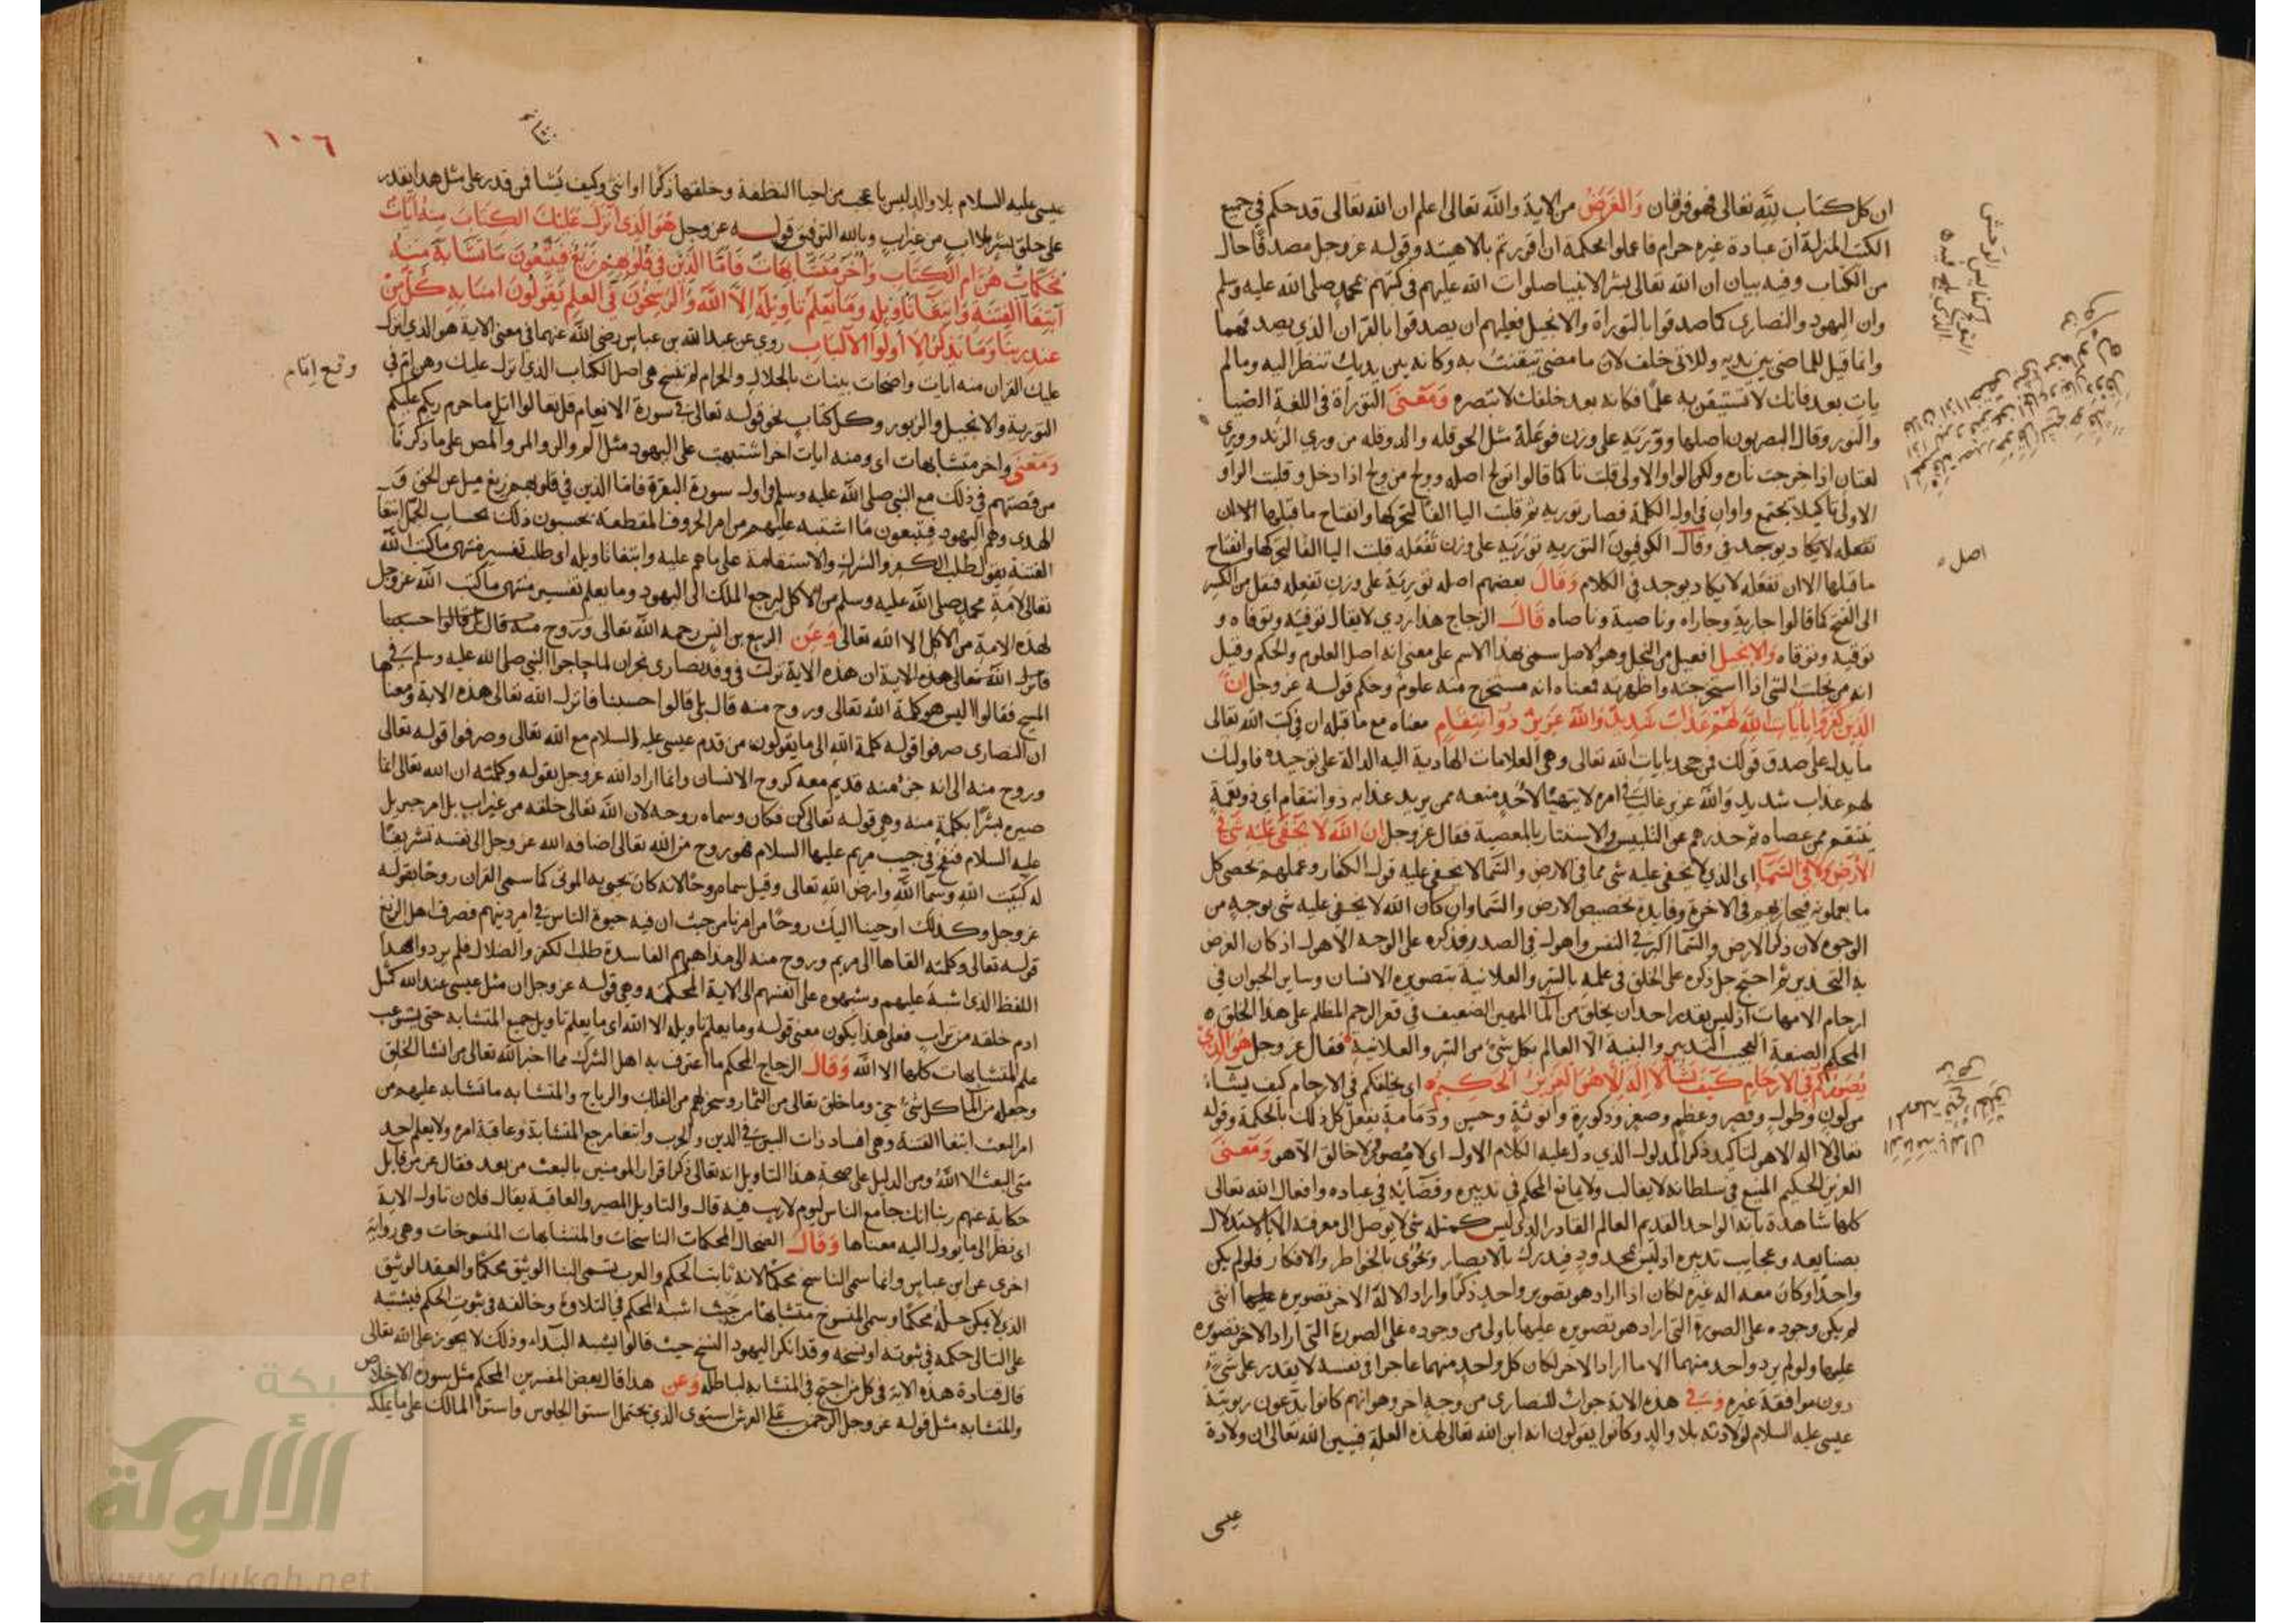 ان كل كتاب لله تعالى فهو فرقان والغرض من الاية والله تعالى اعلم ان الله تعالى قد حكم في جميع
الكتب المنزلة ان عبادة غيره حرام فاعملوا بحكمه ان اقررتم بالاهيته وقوله عز وجل مصدقا حال
من الكتاب وفيه بيان ان الله تعالى بشر الانبيا صلوات الله عليهم في كتبهم بمحمد صلى الله عليه وسلم
وان اليهود والنصارى كما صدقوا بالتوراة والانجيل فعليهم ان يصدقوا بالقران الذي يصدقهما
وانما قيل للماضي بين يديه وللاتي خلف لان ما مضى تيقنت به وكانه بين يديك تنظر اليه وما لم
يات بعد فانك لا تستيقن به علما فكانه بعد خلفك لا تبصره ومعنى التوراة في اللغة الضيا
والنور وقال البصريون اصلها وورية على وزن فوعلة مثل الحوقله والدوقله من وري الزند ووري
لغتان اذا خرجت ناره ولكن الواو الاولى قلبت تا كما قالوا تولج اصله وولج من ولج اذا دخل وقلبت الواو
الاولى تا كيلا يجتمع واوان في اول الكلمة فصار تورية ثم قلبت اليا الفا لتحركها وانفتاح ما قبلها الا ان
تفعله لا يكاد يوجد في وقال الكوفيون التورية تورية على وزن تفعله قلبت اليا الفا لتحركها وانفتاح
ما قبلها الا ان تفعله لا يكاد يوجد في الكلام وقال بعضهم اصله تورية على وزن تفعله فنقل من الكسر
الى الفتح كما قالوا جارية وجاراه وناصية وناصاه قال الزجاج هذا ردي لا يقال توفية وتوفاه و
توقية وتوقاه والانجيل افعيل من النجل وهو الاصل سمى بهذا الاسم على معنى انه اصل العلوم والحكم وقيل
انه من نجلت الشي اذا استخرجته واظهرته فمعناه انه مستخرج منه علوم وحكم قوله عز وجل ان
الذين كفروا بايات الله لهم عذاب شديد والله عزيز ذو انتقام معناه مع ما قبله ان في كتب الله تعالى
ما يدل على صدق قولك فمن جحد بايات الله تعالى وهي العلامات الهادية اليه الدالة على توحيده فاوليك
لهم عذاب شديد والله عزيز غالب في امره لا يتهيا لاحد منعه ممن يريد عذابه ذو انتقام اي ذو نقمة
ينتقم ممن عصاه ثم حذرهم عن التلبيس والاستتار بالمعصية فقال عز وجل ان الله لا يخفى عليه شي في
الارض ولا في السما اي الذي لا يخفى عليه شي مما في الارض والسما لا يخفى عليه قول الكفار وعملهم يحصي كل
ما يعملونه فيجازيهم في الاخرة وفايدة تخصيص الارض والسما وان كان الله لا يخفى عليه شي بوجه من
الوجوه لان ذكر الارض والسما اكبر في النفس واهول في الصدر فذكره على الوجه الاهول اذ كان الغرض
به التحذير ثم احتج جل ذكره على الخلق في علمه بالسر والعلانية بتصويره الانسان وساير الحيوان في
ارحام الامهات اذ ليس يقدر احد ان يخلق من الما المهين الضعيف في قعر الرحم المظلم على هذا الخلق
المحكم الصنعة العجيب التدبير والبنية الا العالم بكل شي من السر والعلانية فقال عز وجل هو الذي
يصوركم في الارحام كيف يشا لا اله الا هو العزيز الحكيم اي يخلقكم في الارحام كيف يشاء
من لون وطول وقصر وعظم وصغر وذكورة وانوثة وحسن ودمامة يفعل كل ذلك بالحكمة وقوله
تعالى لا اله الا هو لتاكيد ذكر المدلول الذي دل عليه الكلام الاول اي لا مصور ولا خالق الا هو ومعنى
العزيز الحكيم المنيع في سلطانه لا يغالب ولا يمانع المحكم في تدبيره وقضايه في عباده وافعال الله تعالى
كلها شاهدة بانه الواحد القديم العالم القادر الذي ليس كمثله شي لا يوصل الى معرفته الا بالاستدلال
بصنايعه وعجايب تدبيره اذ ليس بمحدود فيدرك بالابصار ويحوى بالخواطر والافكار فلو لم يكن
واحدا وكان معه اله غيره لكان اذا اراد هو تصوير واحد ذكرا واراد الالة الاخر تصويره انثى
لم يكن وجوده على الصورة التي اراد هو تصويره عليها باولى من وجوده على الصورة التي اراد الاخر تصويره
عليها ولو لم يرد واحد منهما الا ما اراد الاخر لكان كل واحد منهما عاجزا في نفسه لا يقدر على شي
دون موافقة غيره وفي هذه الاية جواب للنصارى من وجه اخر وهو انهم كانوا يدعون ربوبية
عيسى عليه السلام لولادته بلا والد وكانوا يقولون انه ابن الله تعالى لهذه العلة فبين الله تعالى ان ولادة
عيسى
اصل
١٠٦
عيسى عليه السلام بلا والد ليس باعجب من احيا النطفة وخلقها ذكرا او انثى وكيف يشا فمن قدر على مثل هذا يقدر
على خلق بشر بلا اب من غير اب وبالله التوفيق قوله عز وجل هو الذي انزل عليك الكتاب منه ايات
محكمات هن ام الكتاب واخر متشابهات فاما الذين في قلوبهم زيغ فيتبعون ما تشابه منه
ابتغا الفتنة وابتغا تاويله وما يعلم تاويله الا الله والراسخون في العلم يقولون امنا به كل من
عند ربنا وما يذكر الا اولوا الالباب روي عن عبد الله بن عباس رضي الله عنهما في معنى الاية هو الذي انزل
عليك القران منه ايات واضحات بينات بالحلال والحرام لم تنسخ هي اصل الكتاب الذي انزل عليك وهن ام في
التورية والانجيل والزبور وكل كتاب نحو قوله تعالى في سورة الانعام قل تعالوا اتل ما حرم ربكم عليكم
ومعنى واخر متشابهات اي ومنه ايات اخر اشتبهت على اليهود مثل الم والر والمر والمص على ما ذكرنا
من قصتهم في ذلك مع النبي صلى الله عليه وسلم في اول سورة البقرة فاما الذين في قلوبهم زيغ ميل عن الحق و
الهدى وهم اليهود فيتبعون ما اشتبه عليهم من امر الحروف المقطعة يحسبون ذلك بحساب الجمل ابتغا
الفتنة يقول طلب الكفر والشرك والاستقامة على ما هم عليه وابتغا تاويله اي طلب تفسير منتهى ما كتب الله
تعالى لامة محمد صلى الله عليه وسلم من الاكل ليرجع الملك الى اليهود وما يعلم تفسير منتهى ما كتب الله عز وجل
لهذه الامة من الاكل الا الله تعالى وعن الربيع بن انس رحمه الله تعالى وروح منه قال بلى قالوا حسبنا
فانزل الله تعالى هذه الاية ان هذه الاية نزلت في وفد نصارى نجران لما حاجوا النبي صلى الله عليه وسلم في
المسيح فقالوا اليس هو كلمة الله تعالى وروح منه قال بلى قالوا حسبنا فانزل الله تعالى هذه الاية ومعنا
ان النصارى صرفوا قوله كلمة الله الى ما يقولون من قدم عيسى عليه السلام مع الله تعالى وصرفوا قوله تعالى
وروح منه الى انه جزء منه قديم معه كروح الانسان وانما اراد الله عز وجل بقوله وكلمته ان الله تعالى انما
صيره بشرا بكلمة منه وهي قوله تعالى كن فكان وسماه روحه لان الله تعالى خلقه من غير اب بل امر جبريل
عليه السلام فنفخ في جيب مريم عليها السلام فهو روح من الله تعالى اضافه الله عز وجل الى نفسه تشريفا
له كبيت الله وسما الله وارض الله تعالى وقيل سماه روحا لانه كان يحيي به الموتى كما سمى القران روحا بقوله
عز وجل وكذلك اوحينا اليك روحا من امرنا من حيث ان فيه حيوة الناس في امر دينهم فصرف اهل الزيغ
قوله تعالى وكلمته القاها الى مريم وروح منه الى مذاهبهم الفاسدة طلب الكفر والضلال فلم يردوا هذا
اللفظ الذي اشتبه عليهم وشبهوه على انفسهم الى الاية المحكمة وهي قوله عز وجل ان مثل عيسى عند الله كمثل
ادم خلقه من تراب فعلى هذا يكون معنى قوله وما يعلم تاويله الا الله اي ما يعلم تاويل جميع المتشابه حتى يستوعب
علم المتشابهات كلها الا الله وقال الزجاج المحكم ما اعترف به اهل الشرك مما اخبر الله تعالى من انشا الخلق
وجعله من الما كل شي حي وما خلق تعالى من الثمار وسخر لهم من الفلك والرياح والمتشابه ما تشابه عليهم من
امر البعث ابتغا الفتنة وهي افساد ذات البين في الدين والحرب وابتغا مرجع المتشابه وعاقبة امره ولا يعلم احد
متى البعث الا الله ومن الدليل على صحة هذا التاويل انه تعالى ذكر اقرار المومنين بالبعث من بعد فقال عز من قايل
حكاية عنهم ربنا انك جامع الناس ليوم لا ريب فيه قال والتاويل المصير والعاقبة يقال فلان تاول الاية
اي نظر الى ما يوول اليه معناها وقال الضحاك المحكمات الناسخات والمتشابهات المنسوخات وهي رواية
اخرى عن ابن عباس وانما سمى الناسخ محكما لانه ثابت الحكم والعرب تسمى البنا الوثيق محكما والعقد الوثيق
الذي لا يمكن حله محكما وسمى المنسوخ متشابها من حيث اشبه المحكم في التلاوة وخالفه في ثبوت الحكم فيشتبه
على التالي حكمه في ثبوته او نسخه وقد انكر اليهود النسخ حيث قالوا يشبه البداء وذلك لا يجوز على الله تعالى
قال قتادة هذه الاية في كل من احتج في المتشابه لباطله وعن هذا قال بعض المفسرين المحكم مثل سورة الاخلاص
والمتشابه مثل قوله عز وجل الرحمن على العرش استوى الذي يحتمل استوا الجلوس واستوا المالك على ما يملكه
شبكة
الألوكة
www.alukah.net